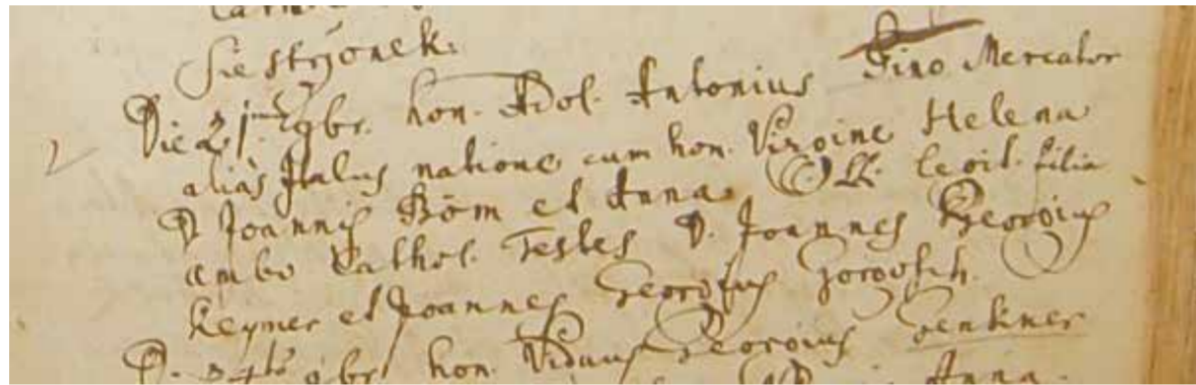 Siestrzonek.
Die 21 9br. hon. Adol. Antonius Fino Mercator
aliàs Italus natione cum hon. Virgine Helena
D. Joannis Böm et Anna legit. filia
ambo Cathol. Testes D. Joannes Georgius
Keymer et Joannes Georgius
D. 24to 9br. hon. Viduus Georgius Zenkner
Anna.